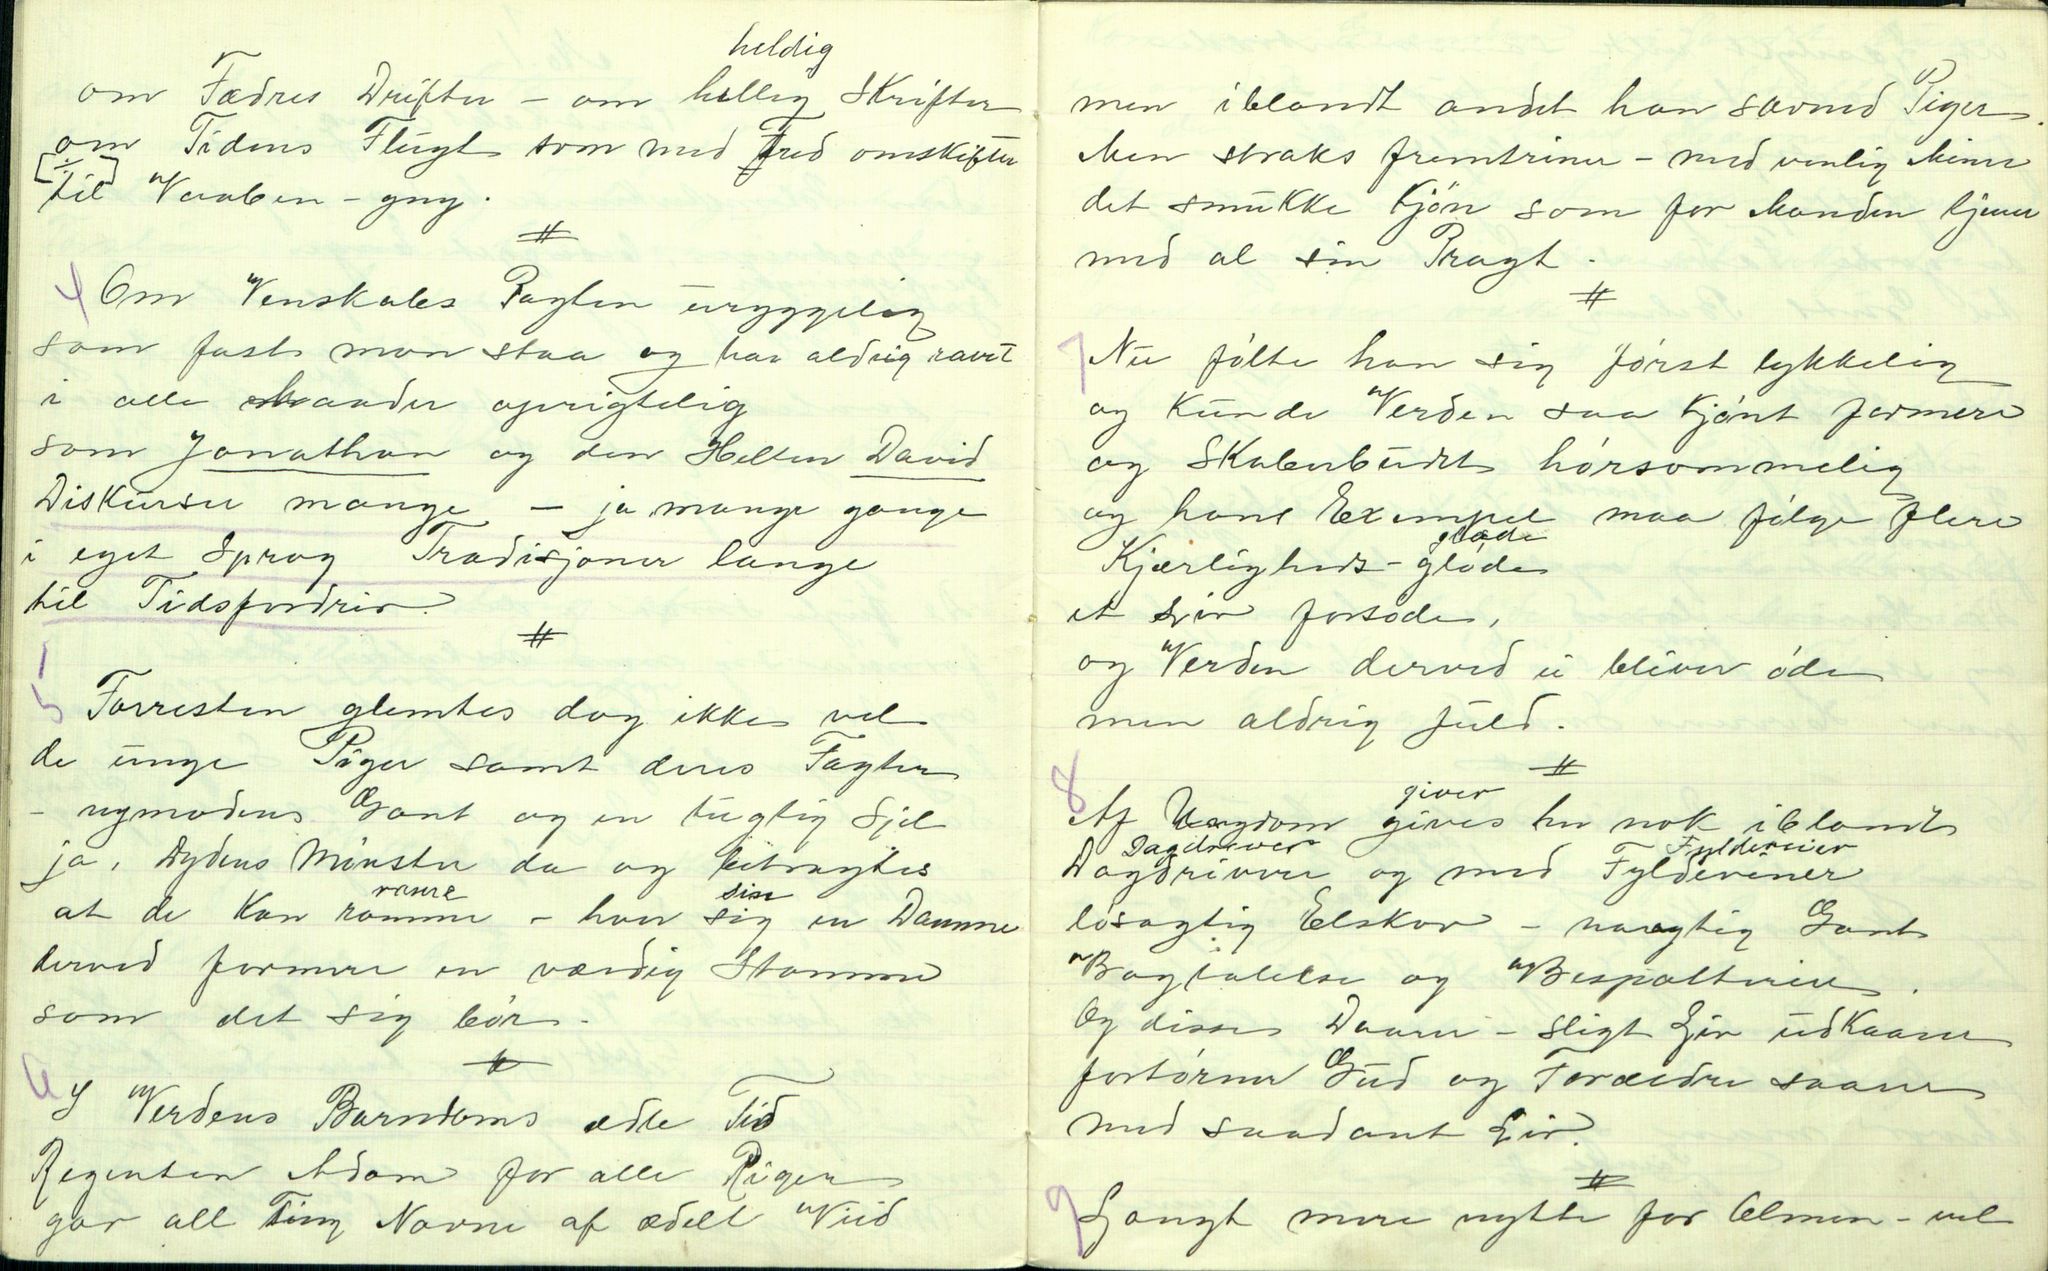 heldig
om Fædres Drifter - om hellig Skrifter
om Tidens Flugt som med Fred omskifter
[÷]
til Vaaben-gny.
#
4 Om Venskabs Pagten uryggelig
som fast mon staa og har aldrig ravet
i alle Maader oprigtelig
som Jonathan og den Helten David
Diskurser mange - ja mange gange
i eget Sprog Tradisjoner lange
til Tidsfordriv.
#
5 Forresten glemtes dog ikke vel
de unge Piger samt deres Fagter
- nymodens Gant og en tugtig Sjel
ja, Dydens Mønster da og bitragtes
ramme sin
at de Kan ramme - hver sig en Damme
derved formere en værdig Stamme
som det sig bør.
#
6 I Verdens Barndoms ædle Tid
Regenten Adam for alle Riger
gav all Ting Navne af ædelt Viid
men iblandt andet han savned Piger.
Men straks fremtriner - med venlig Mine
det smukke Kjøn som for Manden tjener
med al sin Pragt.
#
7 Nu følte han sig først lykkelig
og Kunde Verden saa Kjønt formere
og Skaberbudet hørsommelig
og hans Exempel maa følge flere
gløde
Kjærligheds-gløde
et Liv forsøde,
og Verden derved ei bliver øde
men aldrig fuld.
#
giver
8 Af Ungdom gives her nok iblandt
Dagdriver Fyldesvier
Dagdrivere og med Fyldeviner
løsagtig Elskov - naragtig Gant
Bagtalelse og Bespotterier.
Og disse Daarer - sligt Liv udKaarer
fortørner Gud og Forældre saarer
med saadant Liv.
#
9 Langt mere nytte for Almen-vel